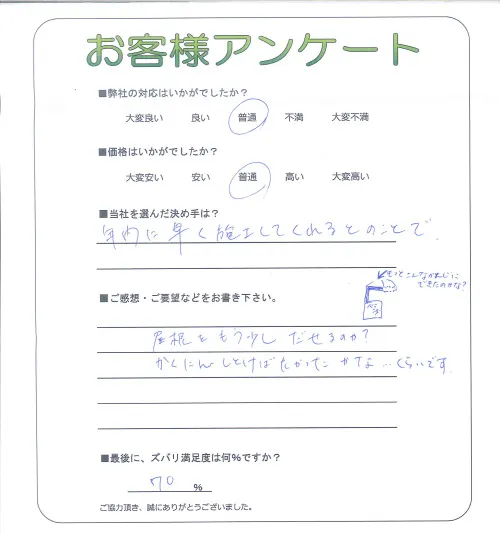 お客様アンケート
■弊社の対応はいかがでしたか？
大変良い 良い 普通 不満 大変不満
■価格はいかがでしたか？
大変安い 安い 普通 高い 大変高い
■当社を選んだ決め手は？
年内に早く施工してくれるとのことで
もっとこんなかんじに
できたのかな？
■ご感想・ご要望などをお書き下さい。
屋根をもう少しだせるのか？
かくにんしとけばよかったかな…くらいです
■最後に、ズバリ満足度は何%ですか？
70 %
ご協力頂き、誠にありがとうございました。